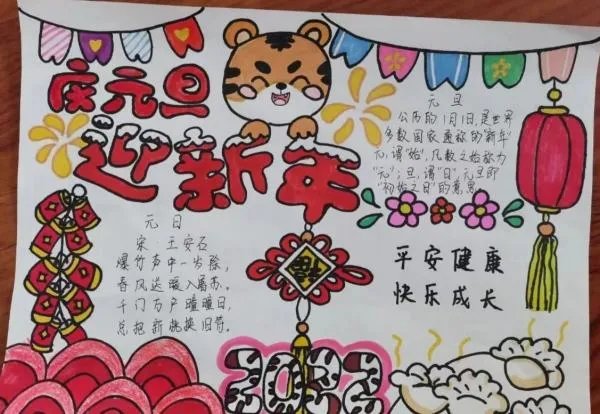 庆元旦
迎新年
元旦
公历的1月1日,是世界
多数国家通称的"新年"
元,谓"始",凡数之始称为
"元";旦,谓"日",元旦即
"初始之日"的意思。
元日
宋·王安石
爆竹声中一岁除,
春风送暖入屠苏。
千门万户瞳瞳日,
总把新桃换旧符。
福
平安健康
快乐成长
2022